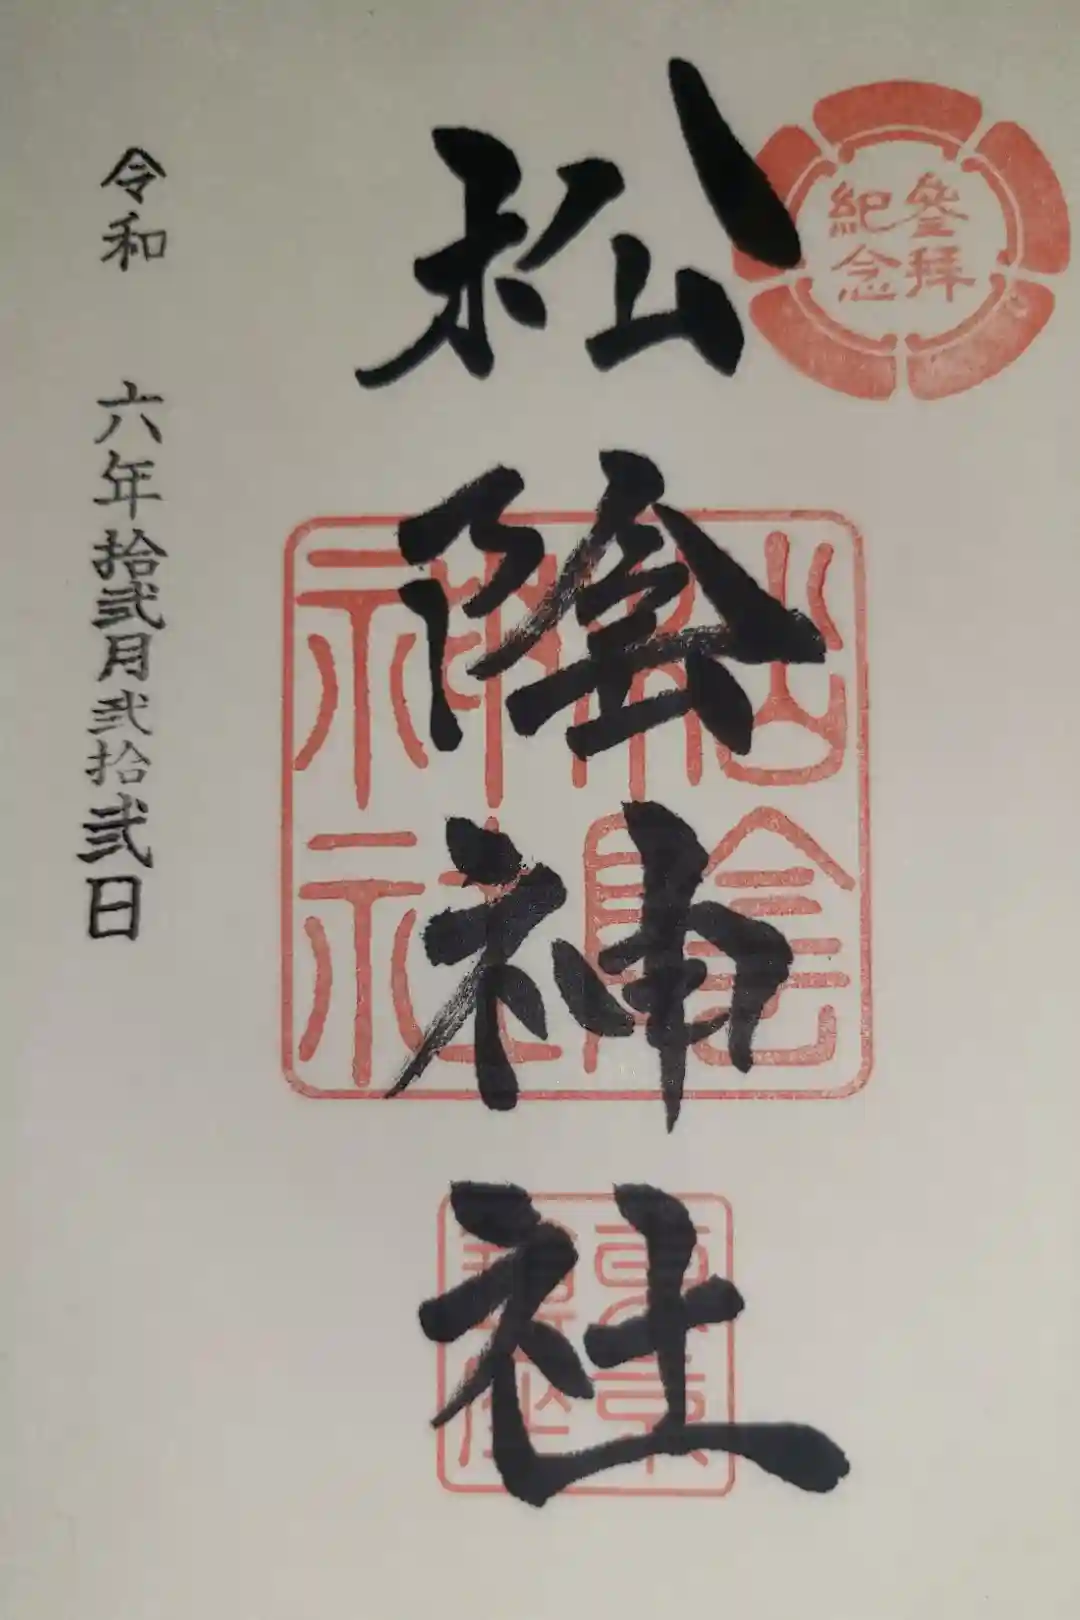 參拜
紀念
松陰神社
松陰
神社
令和 六年拾弐月弐拾弐日